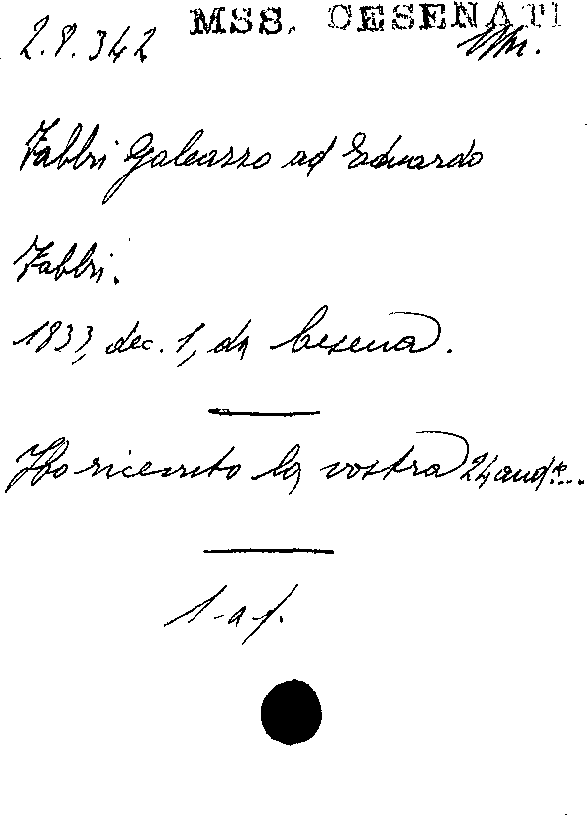 MSS. CESENATI
2.8.342
Fabbri Galeazzo ad Eduardo
Fabbri.
1833, dec. 1, da Cesena.
Ho ricevuto la vostra 24 and.e...
1-a f.